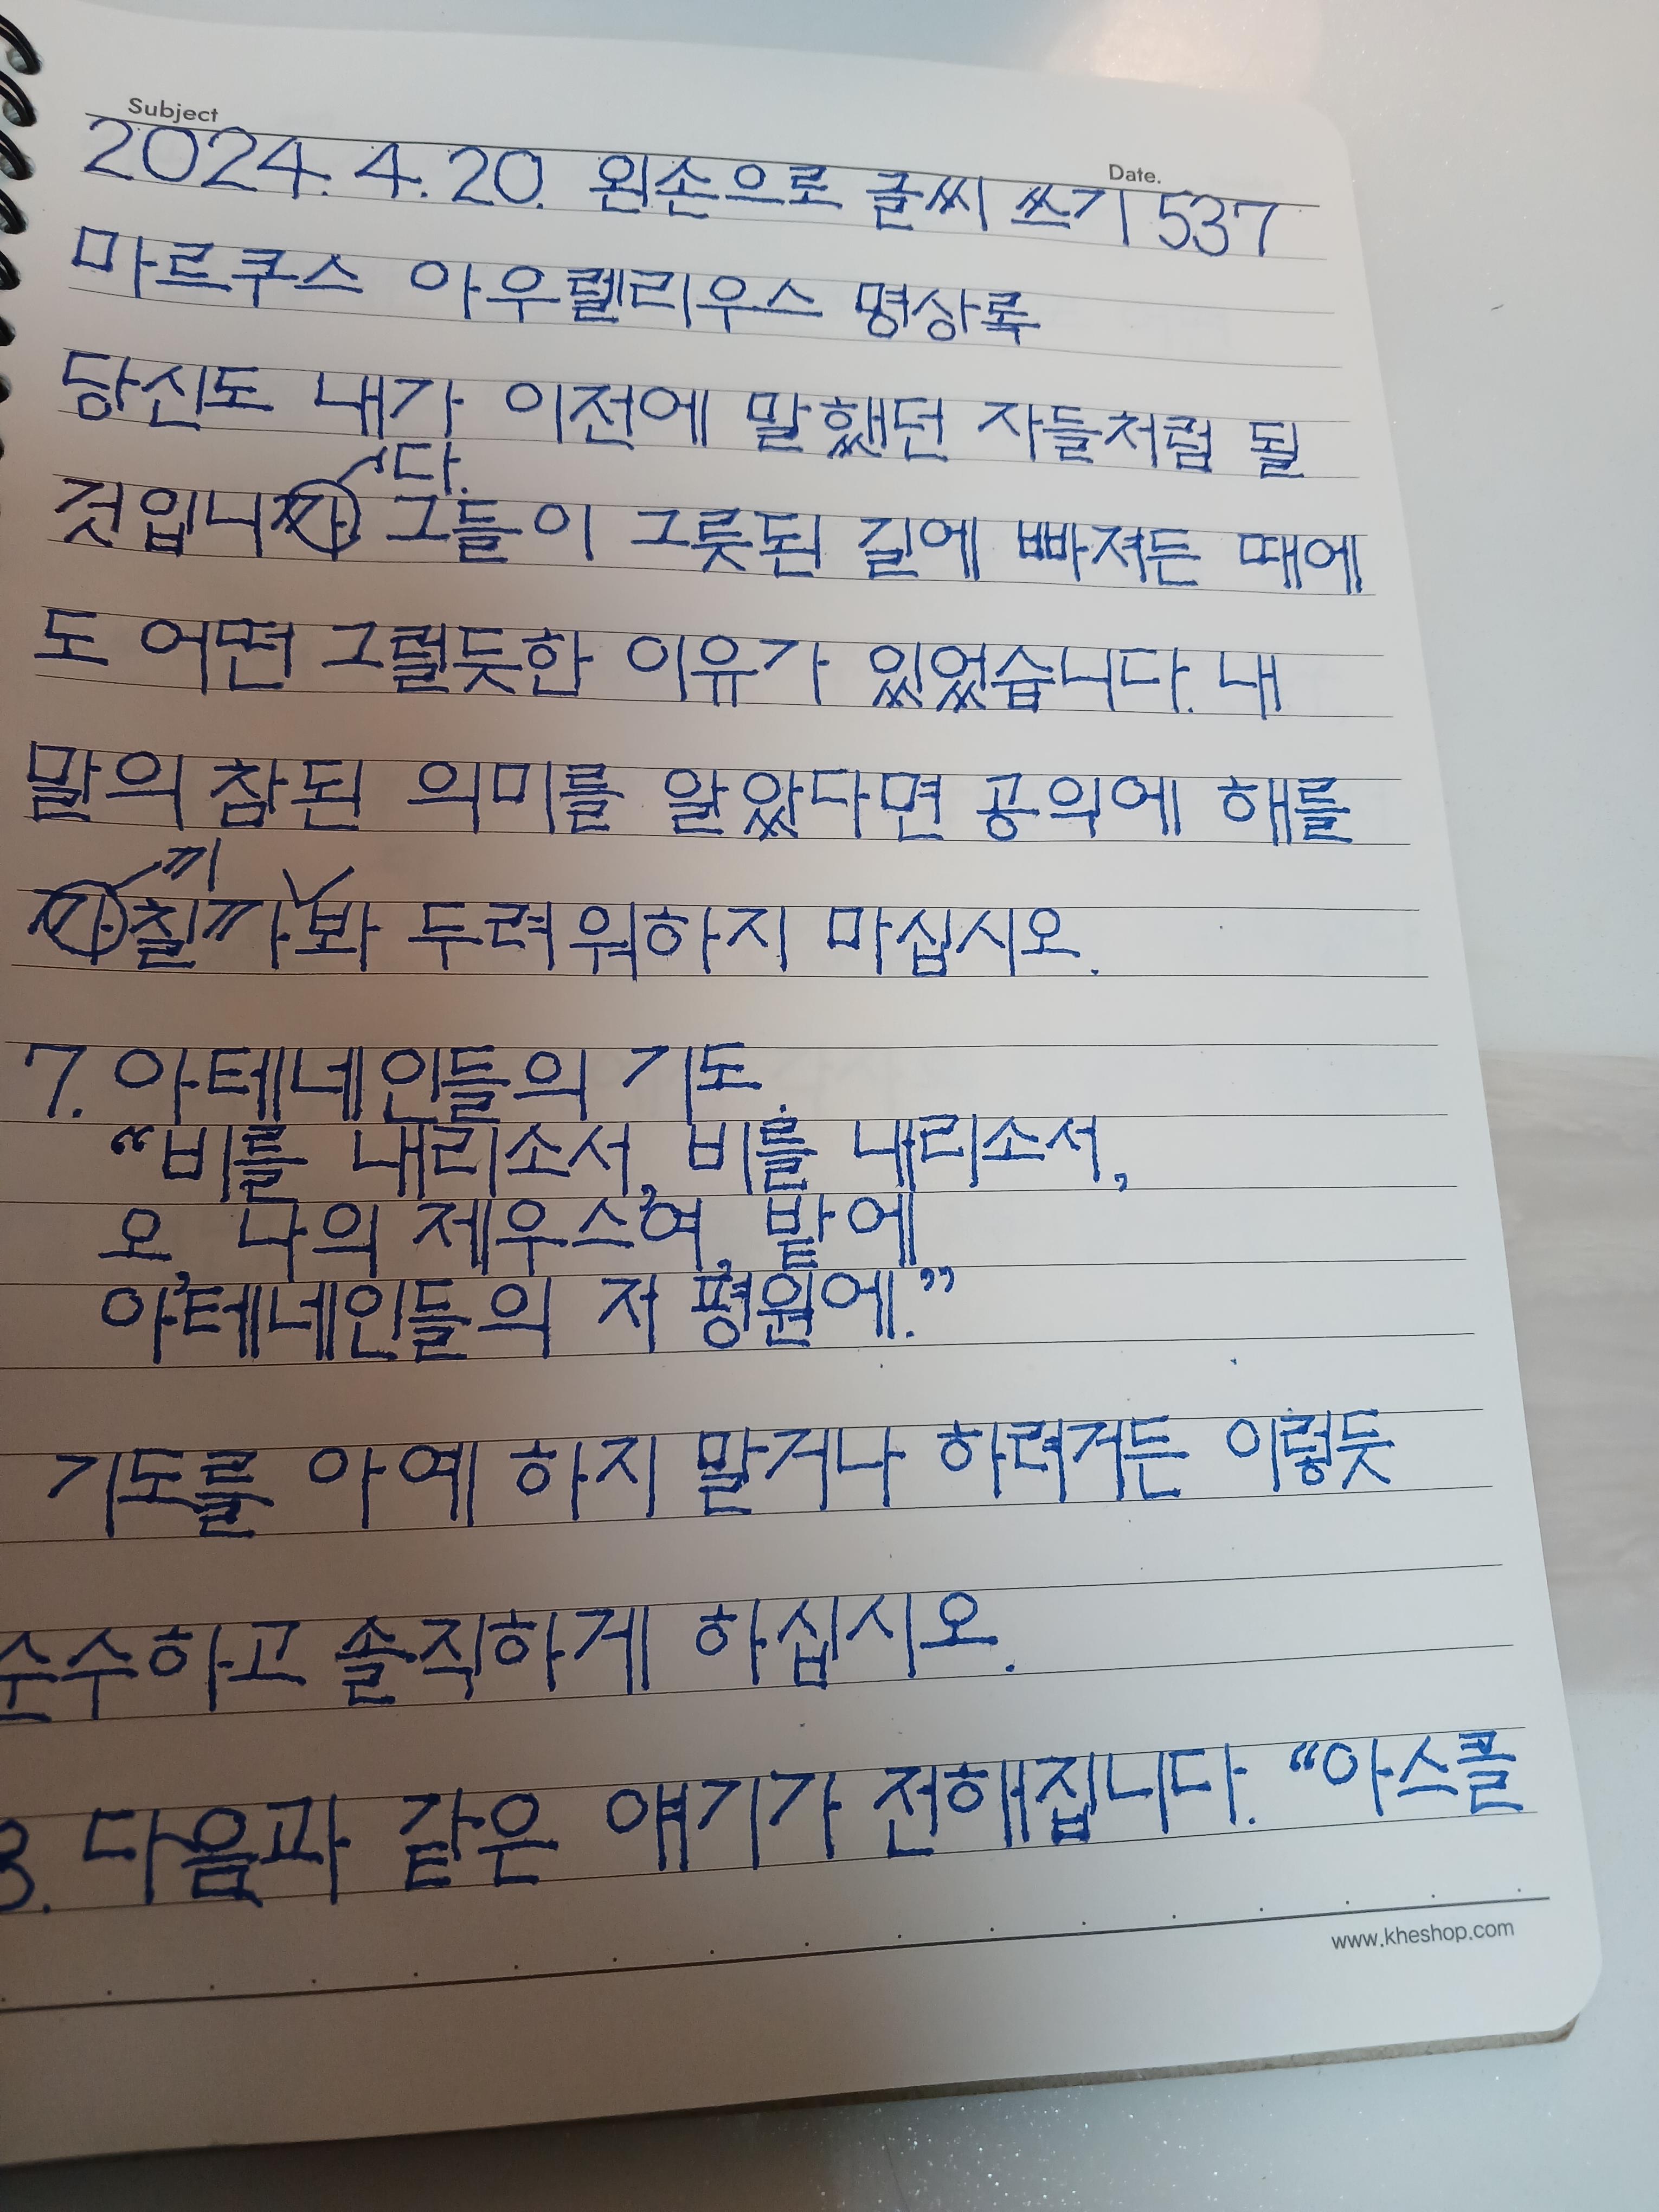 Subject
Date.
2024. 4. 20. 왼손으로 글씨 쓰기 537
마르쿠스 아우렐리우스 명상록
당신도 내가 이전에 말했던 자들처럼 될
다.
것입니까 그들이 그릇된 길에 빠져든 때에
도 어떤 그럴듯한 이유가 있었습니다. 내
말의 참된 의미를 알았다면 공익에 해를
끼
까칠까봐 두려워하지 마십시오.
7. 아테네인들의 기도.
“비를 내리소서, 비를 내리소서,
오, 나의 제우스여, 밭에
아테네인들의 저 평원에.”
기도를 아예 하지 말거나 하려거든 이렇듯
순수하고 솔직하게 하십시오.
8. 다음과 같은 얘기가 전해집니다. “아스클
www.kheshop.com